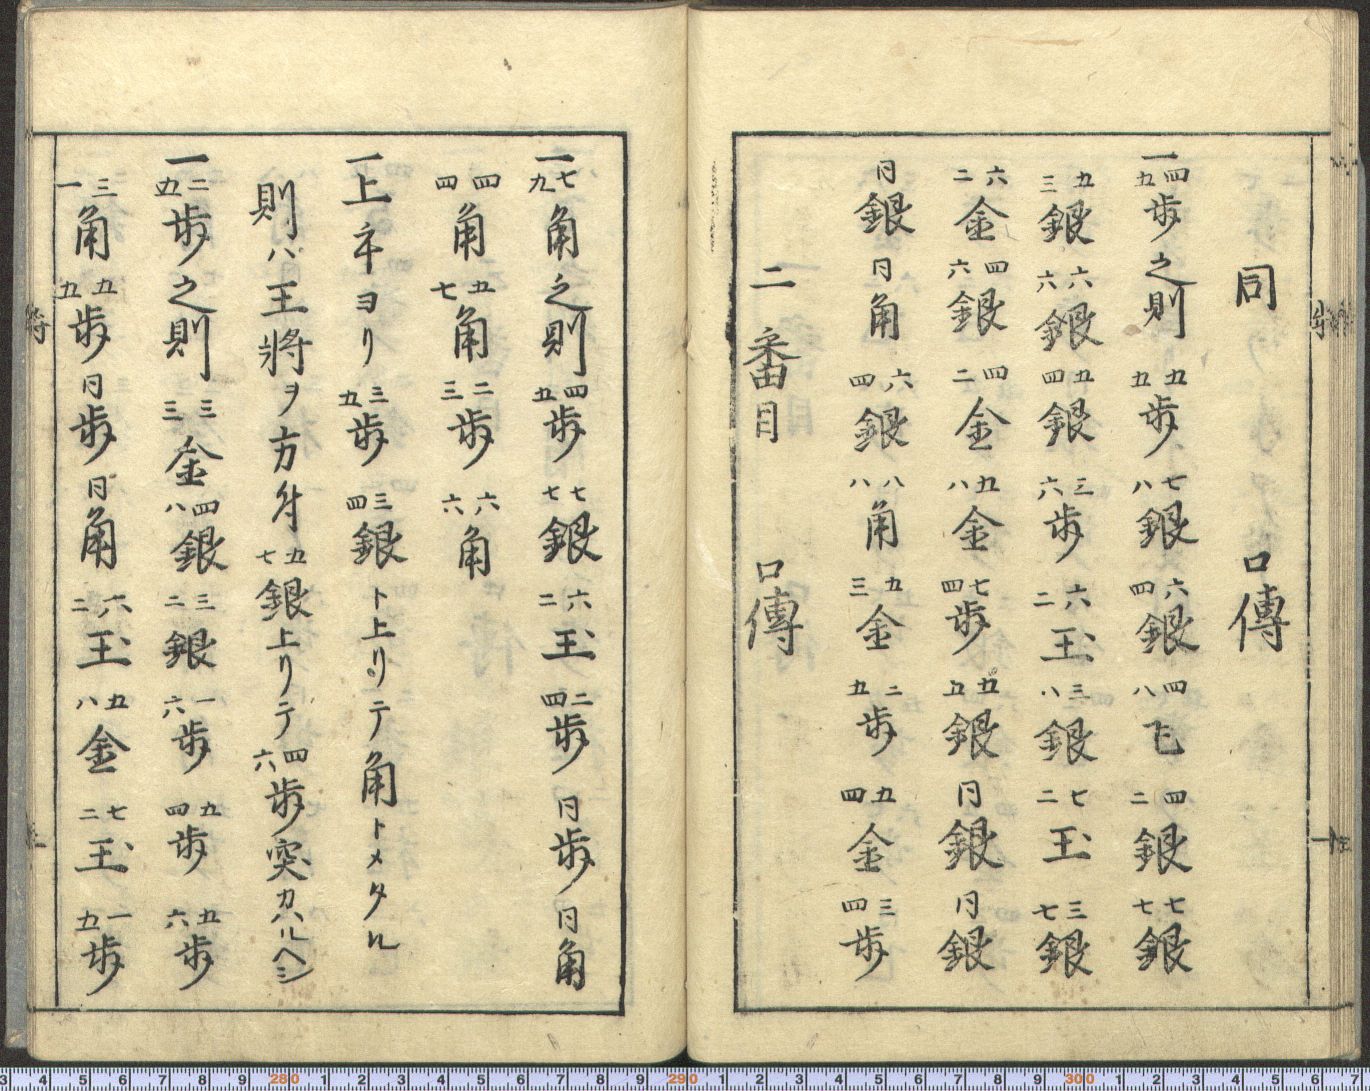 同 口傳
一四五歩之則 五五歩 七八銀 六四銀 四八飞 四二銀 七七銀
五三銀 六六銀 五四銀 三六歩 六二玉 三八銀 七二玉 三七銀
六二金 四六銀 四二金 五八金 七四歩 五五銀 同銀 同銀
同銀 同角 六四銀 八八角 五三金 二五歩 五四金 三四歩
二番目 口傳
一七九角之則 四五歩 七七銀 六二玉 二四歩 同歩 同角
四四角 五七角 二三歩 六六角
一上手ヨリ三五歩 三四銀ト上リテ角トメタル
則ハ王將ヲ方付五七銀上リテ四六歩突カハルヘシ
一二五歩之則 三三金 四八銀 三二銀 一六歩 五四歩 五六歩
三一角 五五歩 同歩 同角 六二玉 五八金 七二玉 一五歩
3 4 5 6 7 8 9 280 1 2 3 4 5 6 7 8 9 290 1 2 3 4 5 6 7 8 9 300 1 2 3 4 5 6 7